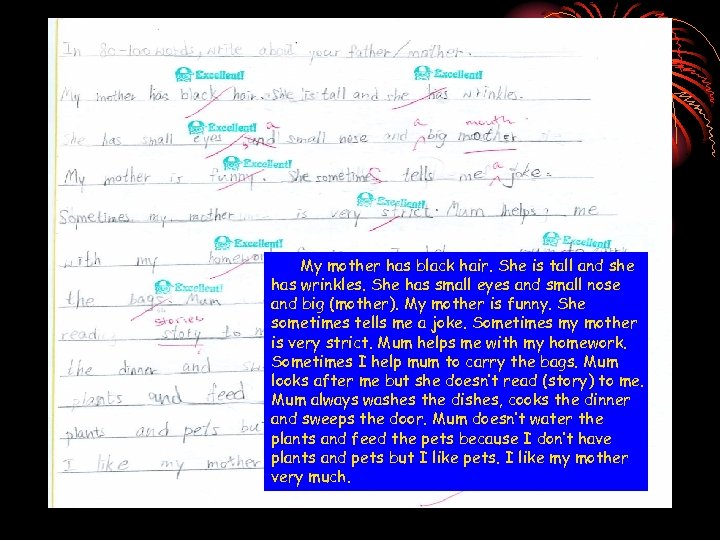 In 80-100 words, write about your father/mother.
Excellent! Excellent!
My mother has black hair. She is tall and she has wrinkles.
Excellent! a a mouth
She has small eyes and small nose and big mother
Excellent! a
My mother is funny. She sometimes tells me joke.
Excellent!
Sometimes my mother is very strict. Mum helps me
Excellent! Excellent!
with my homework
Excellent!
the bags. Mum
stories
reading story to
the dinner and
plants and feed
plants and pets but
I like my mother
My mother has black hair. She is tall and she
has wrinkles. She has small eyes and small nose
and big (mother). My mother is funny. She
sometimes tells me a joke. Sometimes my mother
is very strict. Mum helps me with my homework.
Sometimes I help mum to carry the bags. Mum
looks after me but she doesn't read (story) to me.
Mum always washes the dishes, cooks the dinner
and sweeps the door. Mum doesn't water the
plants and feed the pets because I don't have
plants and pets but I like pets. I like my mother
very much.